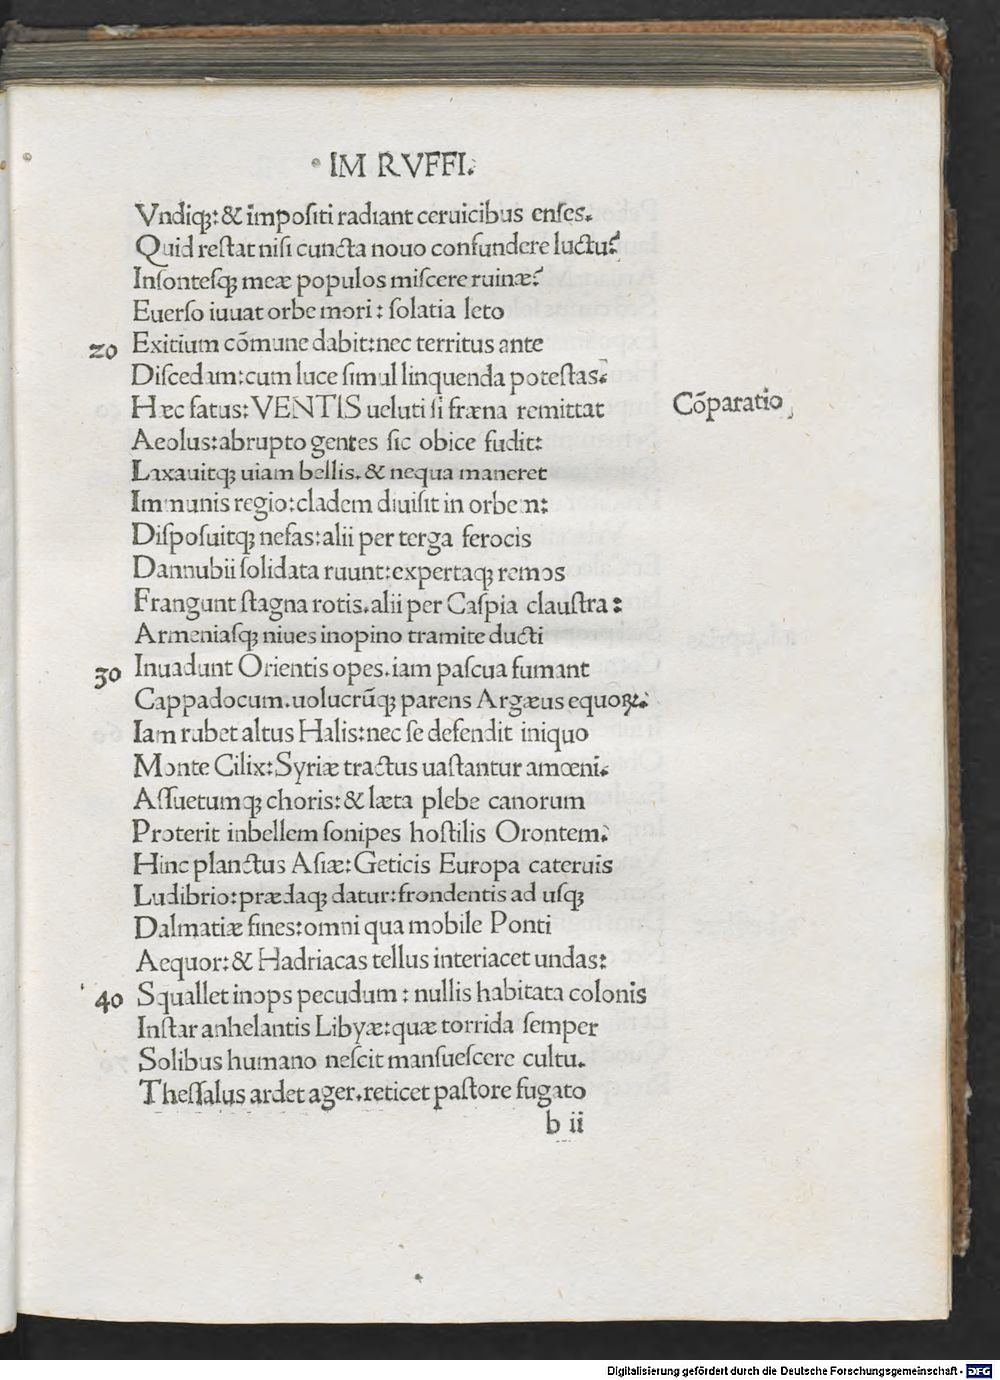 IM RVFFI.
Vndiqꝫ:& impositi radiant ceruicibus enses.
Quid restat nisi cuncta nouo confundere luctu?
Insontesqꝫ meæ populos miscere ruinæ?
Euerso iuuat orbe mori: solatia leto
20 Exitium cōmune dabit:nec territus ante
Discedam:cum luce simul linquenda potestas.
Hæc fatus:VENTIS ueluti si fræna remittat Cōparatio
Aeolus:abrupto gentes sic obice fudit:
Laxauitqꝫ uiam bellis.& nequa maneret
Immunis regio:cladem diuisit in orbem:
Disposuitqꝫ nefas:alii per terga ferocis
Dannubii solidata ruunt:expertaqꝫ remos
Frangunt stagna rotis.alii per Caspia claustra:
Armeniasqꝫ niues inopino tramite ducti
30 Inuadunt Orientis opes.iam pascua fumant
Cappadocum.uolucrūqꝫ parens Argæus equoꝝ.
Iam rubet altus Halis:nec se defendit iniquo
Monte Cilix:Syriæ tractus uastantur amœni.
Assuetumqꝫ choris:& læta plebe canorum
Proterit inbellem sonipes hostilis Orontem.
Hinc planctus Asiæ:Geticis Europa cateruis
Ludibrio:prædaqꝫ datur:frondentis ad usqꝫ
Dalmatiæ fines:omni qua mobile Ponti
Aequor:& Hadriacas tellus interiacet undas:
40 Squallet inops pecudum: nullis habitata colonis
Instar anhelantis Libyæ:quæ torrida semper
Solibus humano nescit mansuescere cultu.
Thessalus ardet ager.reticet pastore fugato
b ii
Digitalisierung gefördert durch die Deutsche Forschungsgemeinschaft - DFG